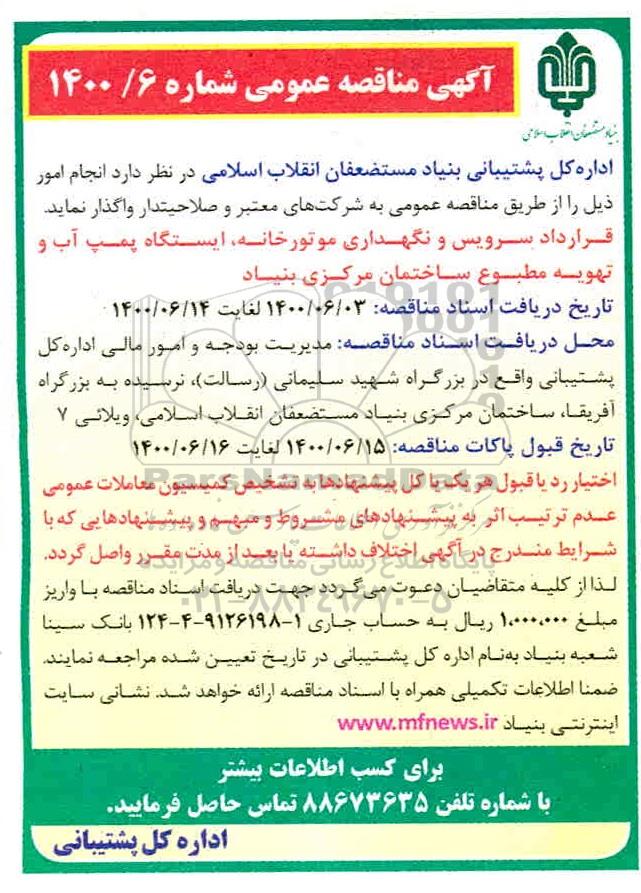 بنیاد مستضعفان انقلاب اسلامی
آگهی مناقصه عمومی شماره ۶/ ۱۴۰۰
اداره‌کل پشتیبانی بنیاد مستضعفان انقلاب اسلامی در نظر دارد انجام امور
ذیل را از طریق مناقصه عمومی به شرکت‌های معتبر و صلاحیتدار واگذار نماید.
قرارداد سرویس و نگهداری موتورخانه، ایستگاه پمپ آب و
تهویه مطبوع ساختمان مرکزی بنیاد
تاریخ دریافت اسناد مناقصه: ۱۴۰۰/۰۶/۰۳ لغایت ۱۴۰۰/۰۶/۱۴
محل دریافت اسناد مناقصه: مدیریت بودجه و امور مالی اداره‌کل
پشتیبانی واقع در بزرگراه شهید سلیمانی (رسالت)، نرسیده به بزرگراه
آفریقا، ساختمان مرکزی بنیاد مستضعفان انقلاب اسلامی، ویلائی ۷
تاریخ قبول پاکات مناقصه: ۱۴۰۰/۰۶/۱۵ لغایت ۱۴۰۰/۰۶/۱۶
اختیار رد یا قبول هر یک یا کل پیشنهادها به تشخیص کمیسیون معاملات عمومی
عدم ترتیب اثر به پیشنهادهای مشروط و مبهم و پیشنهادهایی که با
شرایط مندرج در آگهی اختلاف داشته یا بعد از مدت مقرر واصل گردد.
لذا از کلیه متقاضیان دعوت می‌گردد جهت دریافت اسناد مناقصه با واریز
مبلغ ۱,۰۰۰,۰۰۰ ریال به حساب جاری ۱-۹۱۲۶۱۹۸-۴-۱۲۴ بانک سینا
شعبه بنیاد به‌نام اداره کل پشتیبانی در تاریخ تعیین شده مراجعه نمایند.
ضمنا اطلاعات تکمیلی همراه با اسناد مناقصه ارائه خواهد شد. نشانی سایت
اینترنتی بنیاد www.mfnews.ir
برای کسب اطلاعات بیشتر
با شماره تلفن ۸۸۶۷۳۶۳۵ تماس حاصل فرمایید.
اداره کل پشتیبانی
ParsNamadData
پایگاه اطلاع رسانی مناقصه و مزایده
۰۲۱-۸۸۳۴۹۶۷۰-۵